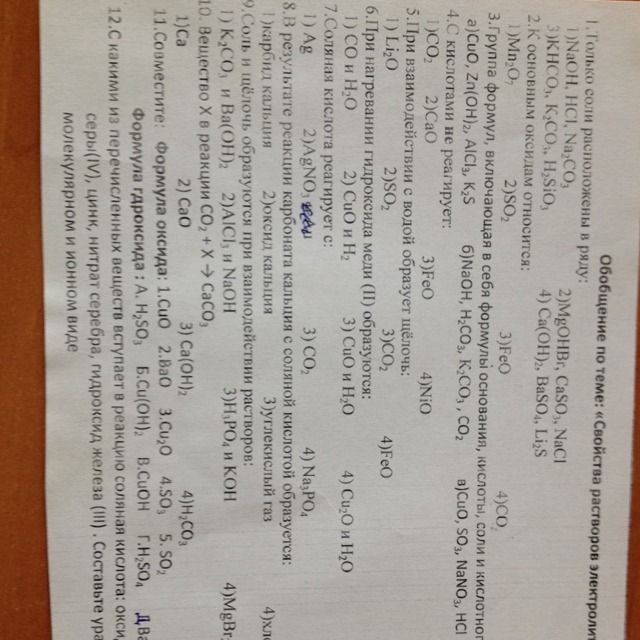 Обобщение по теме: «Свойства растворов электролит
1.Только соли расположены в ряду:
1)NaOH, HCl, Na₂CO₃ 2)MgOHBr, CaSO₃, NaCl
3)KHCO₃, K₂CO₃, H₂SiO₃ 4) Ca(OH)₂, BaSO₄, Li₂S
2.К основным оксидам относится:
1)Mn₂O₇ 2)SO₂ 3)FeO 4)CO₂
3.Группа формул, включающая в себя формулы основания, кислоты, соли и кислотног
а)CuO, Zn(OH)₂, AlCl₃, K₂S б)NaOH, H₂CO₃, K₂CO₃ , CO₂ в)CuO, SO₃, NaNO₃, HCl
4.С кислотами не реагирует:
1)CO₂ 2)CaO 3)FeO 4)NiO
5.При взаимодействии с водой образует щёлочь:
1) Li₂O 2)SO₂ 3)CO₂ 4)FeO
6.При нагревании гидроксида меди (II) образуются:
1) CO и H₂O 2) CuO и H₂ 3) CuO и H₂O 4) Cu₂O и H₂O
7.Соляная кислота реагирует с:
1) Ag 2)AgNO₃ 3) CO₂ 4) Na₃PO₄
8.В результате реакции карбоната кальция с соляной кислотой образуется:
1)карбид кальция 2)оксид кальция 3)углекислый газ
9.Соль и щёлочь образуются при взаимодействии растворов:
1) K₂CO₃ и Ba(OH)₂ 2)AlCl₃ и NaOH 3)H₃PO₄ и KOH 4)MgBr₂
10. Вещество X в реакции CO₂ + X → CaCO₃
1)Ca 2) CaO 3) Ca(OH)₂ 4)H₂CO₃
11.Совместите: Формула оксида: 1.CuO 2.BaO 3.Cu₂O 4.SO₃ 5. SO₂
Формула гдроксида : А. H₂SO₃ Б.Cu(OH)₂ В.CuOH Г.H₂SO₄ Д.Ba
12.С какими из перечисленных веществ вступает в реакцию соляная кислота: окси
серы(IV), цинк, нитрат серебра, гидроксид железа (III) . Составьте ура
молекулярном и ионном виде